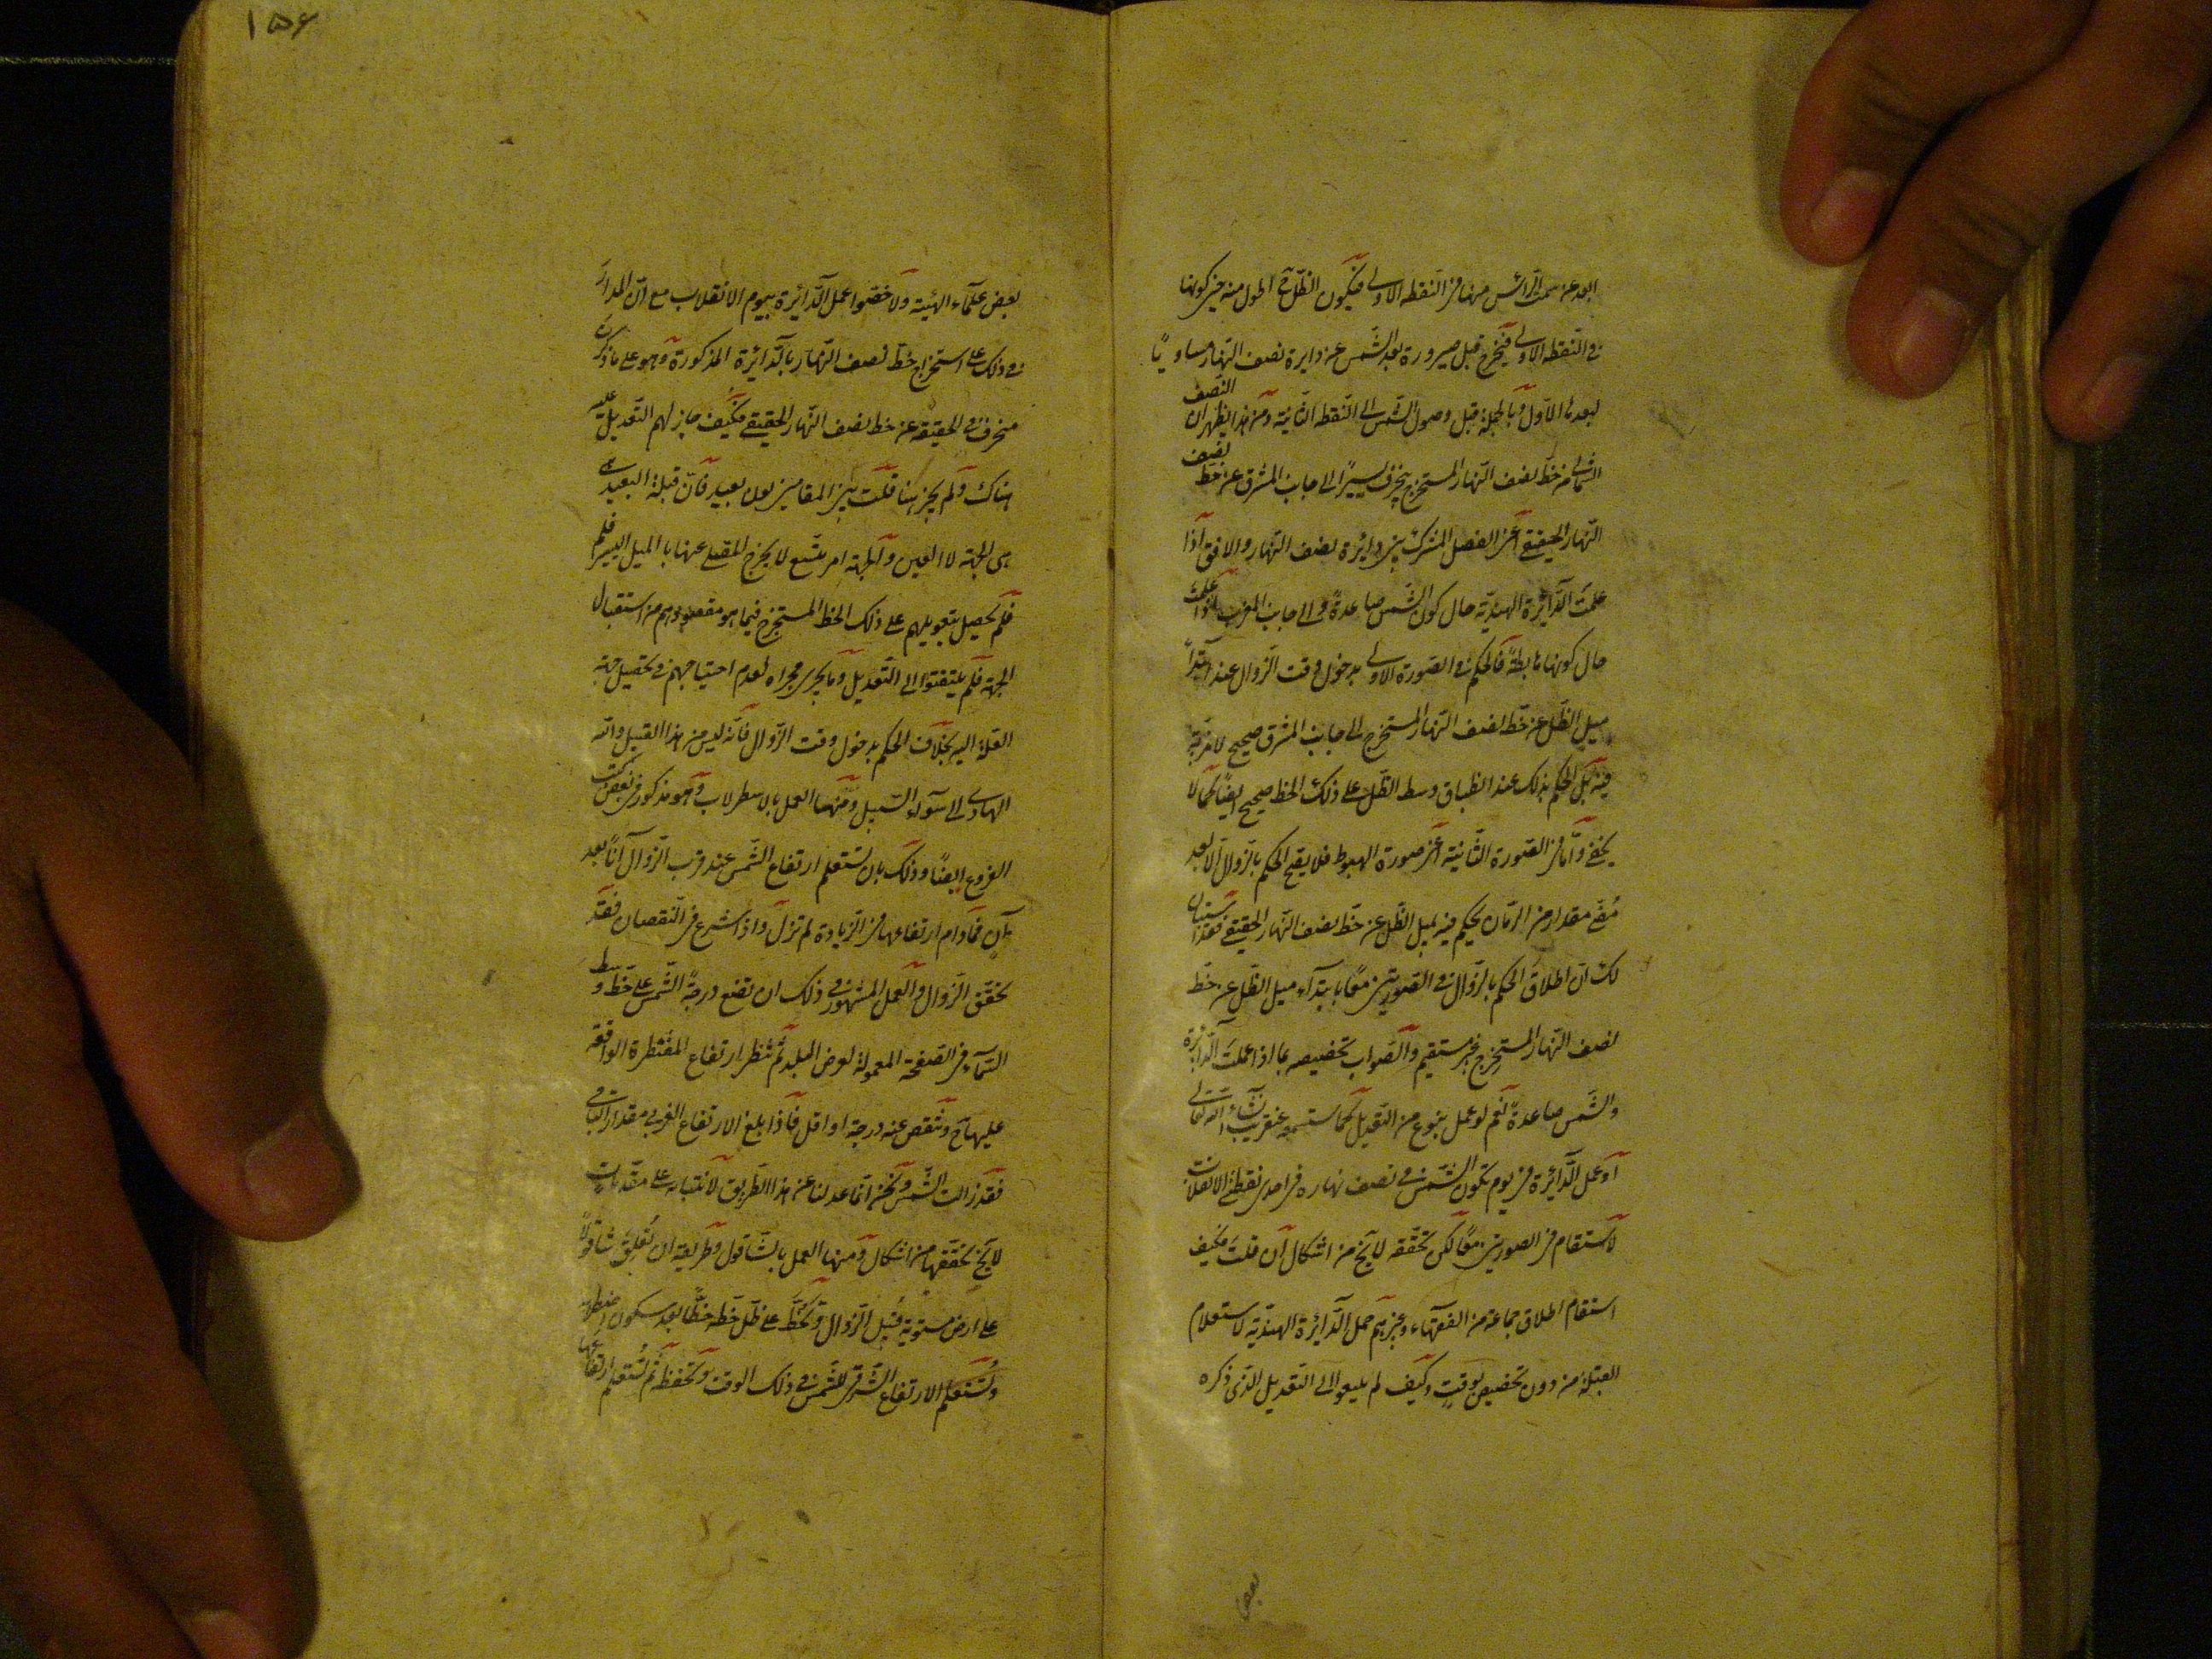 ابعد عن سمت الرأس منها في النقطة الاولى فيكون الظل ح اطول منه حين كونها
في النقطة الاولى فيخرج قبل صيرورة بعد الشمس عن دايرة نصف النهار مساويًا
لبعدها الاول وبالجملة قبل وصول الشمس الى النقطة الثانية ومن هذا يظهر ان النصف
الشمالي من خط نصف النهار المستخرج ينحرف يسيرًا الى جانب المشرق عن خط نصف
النهار الحقيقي اعني الفصل المشترك بين دائرة نصف النهار والافق اذا
عملت الدائرة الهندية حال كون الشمس صاعدة والى جانب المغرب اذا عملت
حال كونها هابطة فالحكم في الصورة الاولى بدخول وقت الزوال عند ابتدأ
ميل الظل عن خط نصف النهار المستخرج الى جانب المشرق صحيح لا مرية
فيه بل الحكم بذلك عند انطباق وسط الظل على ذلك الخط صحيح ايضًا كما لا
يخفى واما في الصورة الثانية اعني صورة الهبوط فلا يصح الحكم بالزوال الا بعد
مضي مقدار من الزمان يحكم فيه بميل الظل عن خط نصف النهار الحقيقي فقد استبان
لك ان اطلاق الحكم بالزوال في الصورتين معًا بابتداء ميل الظل عن خط
نصف النهار المستخرج غير مستقيم والصواب تخصيصه بما اذا عملت الدائرة
والشمس صاعدة نعم لو عمل بنوع من التعديل كما ستسمعه عنقريب انشاء الله تعالى
او عمل الدائرة في يوم تكون الشمس في نصف نهاره في احدى نقطتي الانقلابات
لاستقام في الصورتين معًا لكن تحققه لا يخ من اشكال ان قلت فكيف
استقام اطلاق جماعة من الفقهاء وغيرهم عمل الدائرة الهندية لاستعلام
القبلة من دون تخصيص بوقت وكيف لم يميلوا الى التعديل الذي ذكره
بعض
١٥٤
بعض علماء الهيئة ولا خصوا عمل الدائرة بيوم الانقلاب مع ان المدار
في ذلك على استخراج خط نصف النهار بالدائرة المذكورة وهو على ما ذكرت
منحرف في الحقيقة عن خط نصف النهار الحقيقي فكيف جاز لهم التعديل عليه
هناك ولم يجز هنا قلت بين المقامين بون بعيد فان قبلة البعيد
هي الجهة لا العين والجهة امر متسع لا يخرج المصلي عنها بالميل اليسير
فلم يحصل بتعويلهم على ذلك الخط المستخرج فيما هو مقصودهم من استقبال
الجهة فلم يلتفتوا الى التعديل وما يجري مجراه لعدم احتياجهم في تحصيل جهة
القبلة اليه بخلاف الحكم بدخول وقت الزوال فانه ليس من هذا القبيل والله
الهادي الى سواء السبيل ومنها العمل بالاسطرلاب وهو مذكور في بعض كتب
الفروع ايضًا وذلك بان تستعلم ارتفاع الشمس عند قرب الزوال آنًا بعد
آن فما دام ارتفاعها في الزيادة لم تزل واذا شرع في النقصان فقد
تحقق الزوال والعمل المشهور في ذلك ان تضع درجة الشمس على خط وسط
السماء في الصفحة المعمولة لعرض البلد ثم تنظر ارتفاع المقنطرة الواقعة
عليها ح وتنقص عنه درجة او اقل فاذا بلغ الارتفاع الغربي مقدار الباقي
فقد زالت الشمس ونحن انما عدلنا عن هذا الطريق لابتنائه على مقدمات
لا يخ تحققها من اشكال ومنها العمل بالشاقول وطريقه ان تعلق شاقولًا
على ارض مستوية قبيل الزوال وتخط على ظل خطه خطًا بعد سكون اضطرابه
وتستعلم الارتفاع الشرقي للشمس في ذلك الوقت وتحفظه ثم تستعلم ارتفاعها